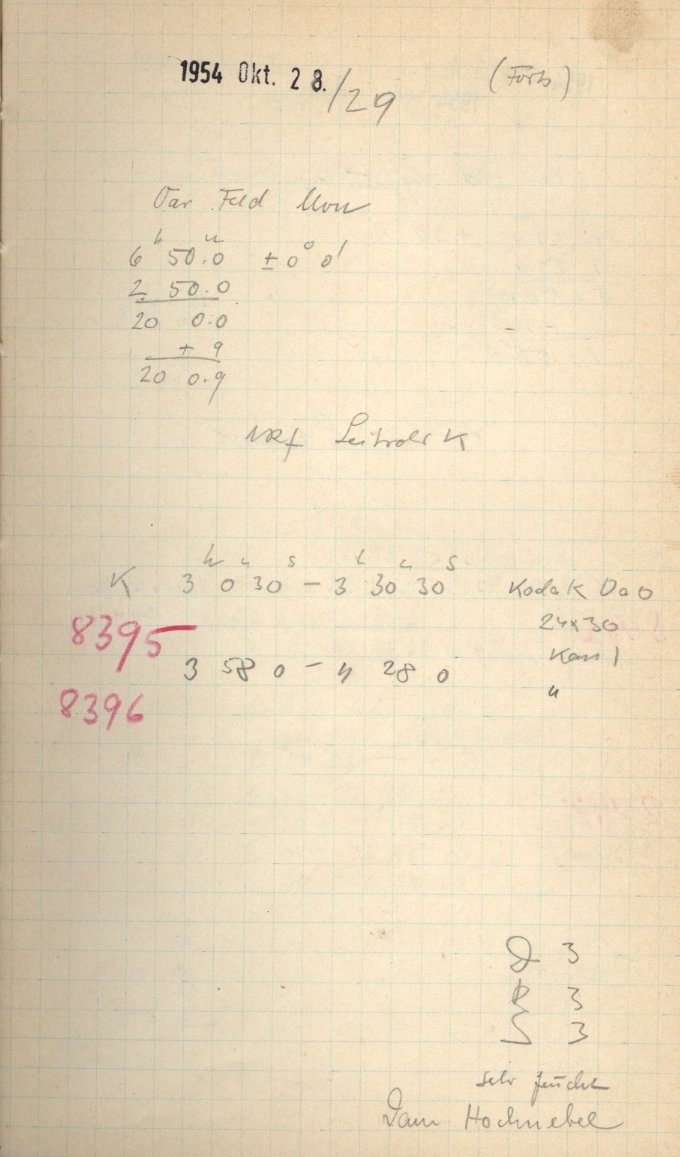 1954 Okt. 28./29 (Forts)
Var Feld Mon
h m
6 50.0 ± 0° 0'
2 50.0
20 0.0
+ 9
20 0.9
K
h m s h m s
K 3 0 30 – 3 30 30 Kodak OaO
8395 24x30
Kass 1
3 58 0 – 4 28 0 "
8396
D 3
R 3
S 3
sehr feucht
Dann Hochnebel